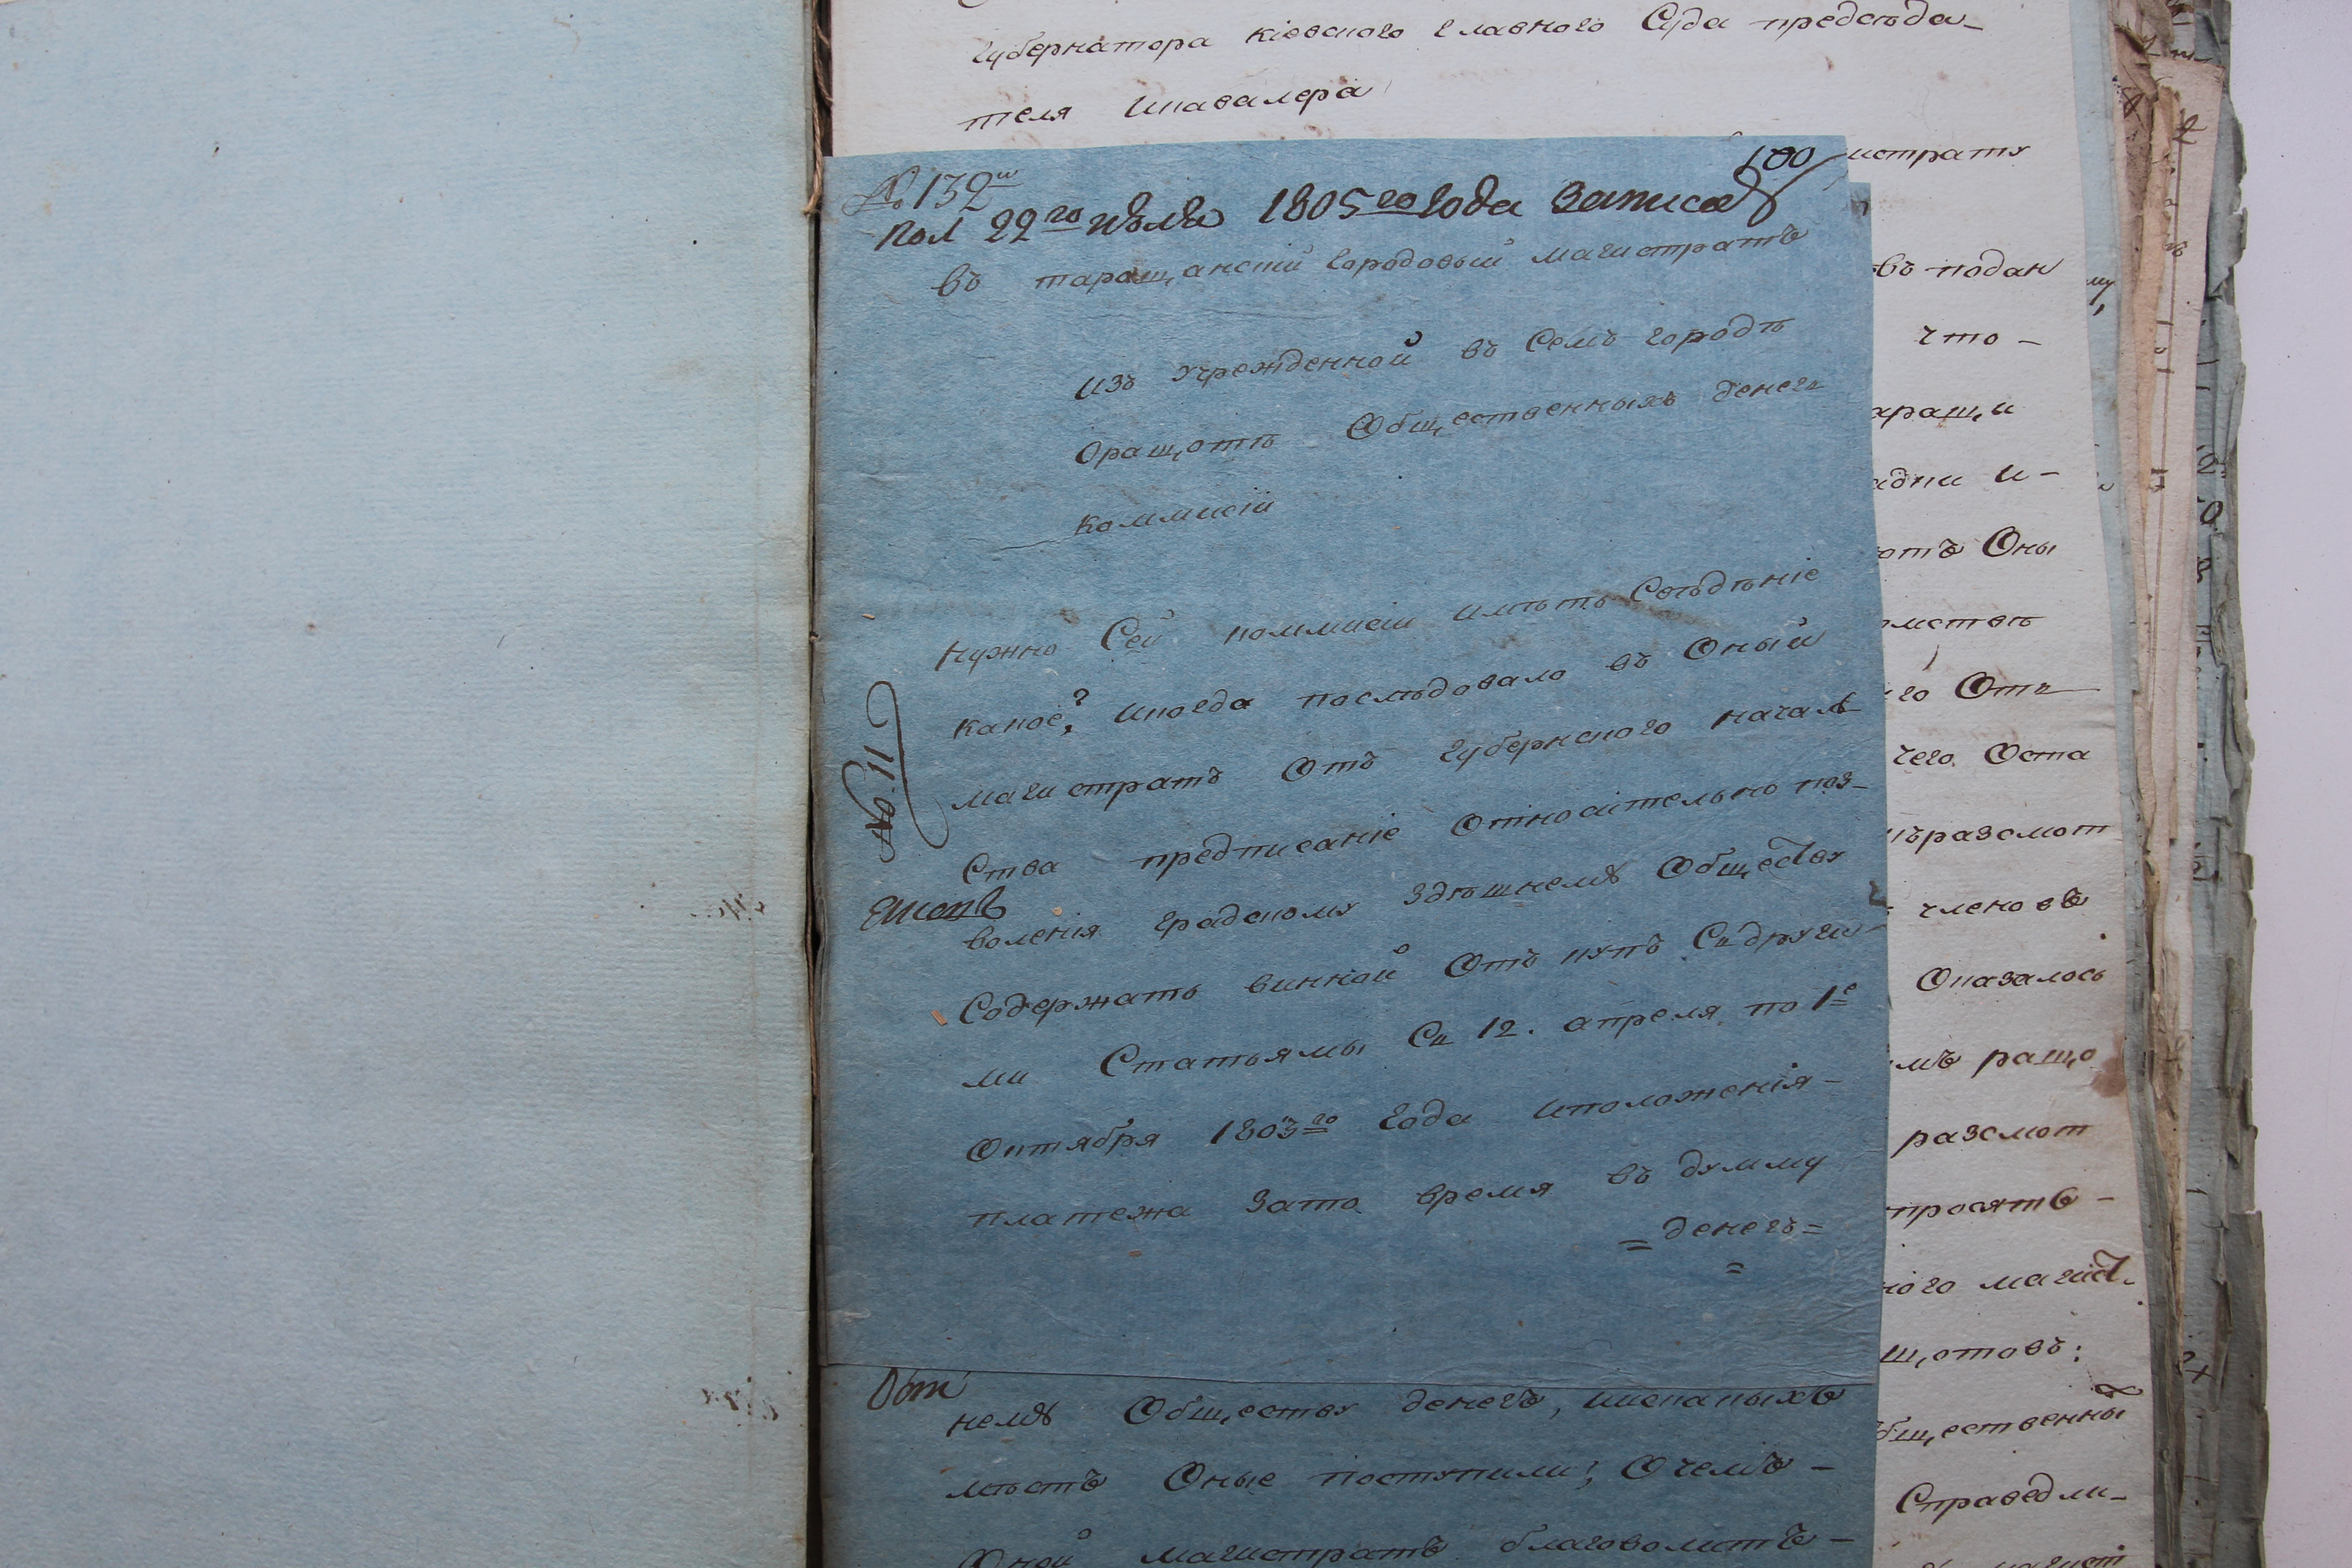 губернатора кіевского главного Суда председа-
теля икавалера
100
№ 132й
Пол 22го июля 1805го года Записав
въ таращанскій городовый магистратъ
изъ Учрежденной въ Семъ городѣ
Оращотѣ Общественныхъ денегъ
коммисіи
Нужно Сей коммисіи имѣть Свѣдѣніе
какое? икогда последовало въ Оный
магистратъ Отъ губернского началь
№ 11
Ства предписаніе Относительно поз-
воленія градскому здѣшнемѹ Обществу
Содержать винной Откупъ Съ други
ми Статьямы Съ 12. апреля по 1е
Октября 1803го года иположенія-
платежа Зато время въ думму
= денегъ =
=
немѹ Обществу денегъ, искакихъ
мѣстъ Оные поступили; Очемъ -
Оной магистратъ благоволитъ -
истрату
въ подан
что -
аращи
адки и-
отъ Оны
го Отъ
чего Оста
разсмот
членовъ
Оказалось
мъ ращо
разсмот
просятъ -
ного магист.
щотовъ:
бщественны
Справедли-